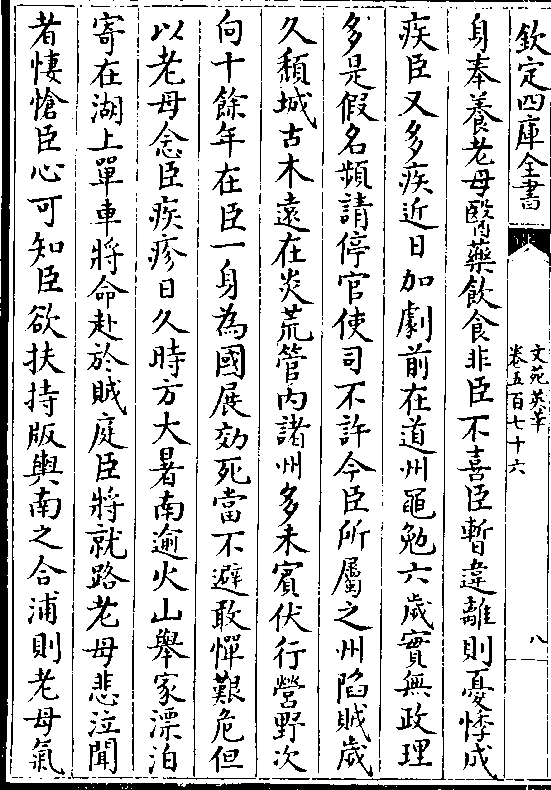 欽定四庫全書
文苑英華
卷五百七十六
八
身奉養老母醫藥飲食非臣不喜臣暫違離則憂悸成
疾臣又多疾近日加劇前在道州黽勉六歲實無政理
多是假名頻請停官使司不許今臣所屬之州陷賊歲
久頽城古木遠在炎荒管內諸州多未賓伏行營野次
向十餘年在臣一身為國展効死當不避敢憚艱危但
以老母念臣疾疹日久時方大暑南逾火山舉家漂泊
寄在湖上單車將命赴於賊庭臣將就路老母悲泣聞
者悽愴臣心可知臣欲扶持版輿南之合浦則老母氣